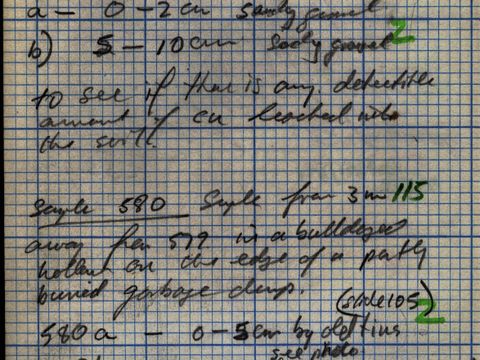 a - 0 - 2cm sandy gravel
b) 5 - 10cm sandy gravel 2
to see if there is any detectible
amount of cu leached into
the soil.
Sample 580 Sample from 3m 115
away from 579 in a bulldozed
hollow on the edge of a partly
buried garbage dump.
(slide 105) 2
580a - 0-5cm by
see photo